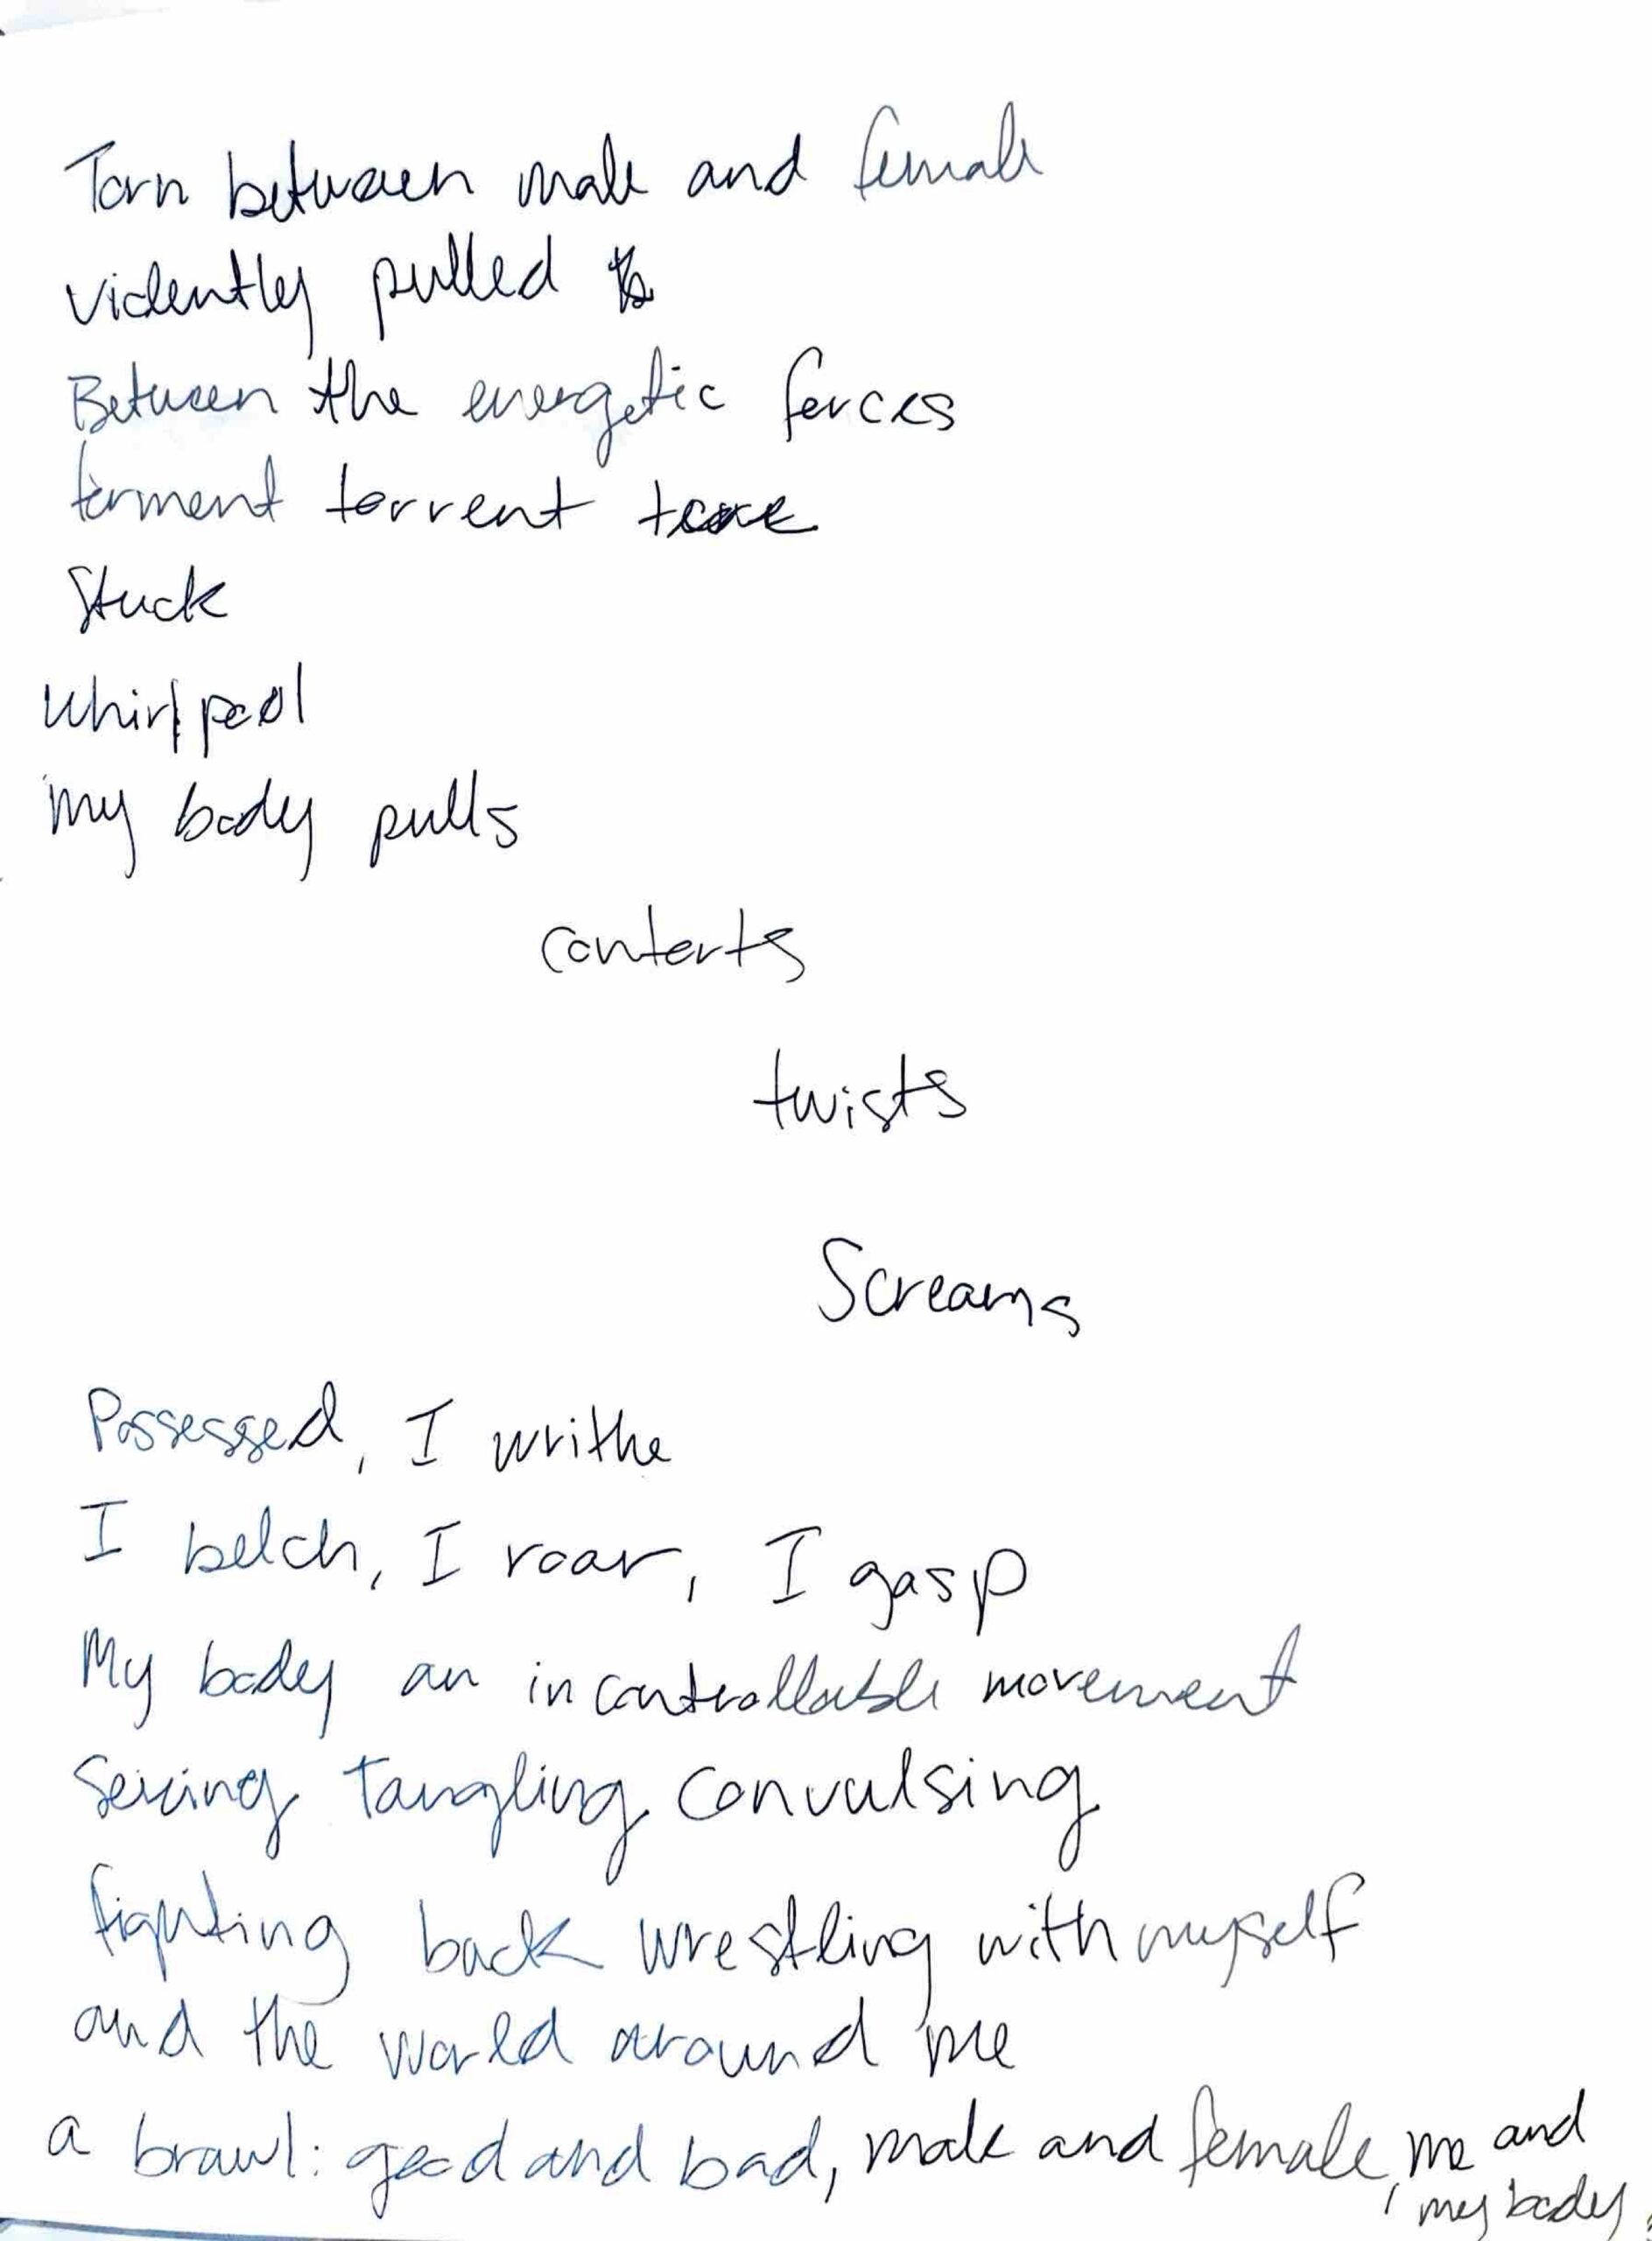 Torn between male and female
violently pulled to
Between the energetic forces
torment torrent
Stuck
whirlpool
my body pulls
contorts
twists
Screams
Possessed, I writhe
I belch, I roar, I gasp
My body an incontrollable movement
Seizing Tangling convulsing
fighting back wrestling with myself
and the world around me
a brawl: good and bad, male and female, me and
my body